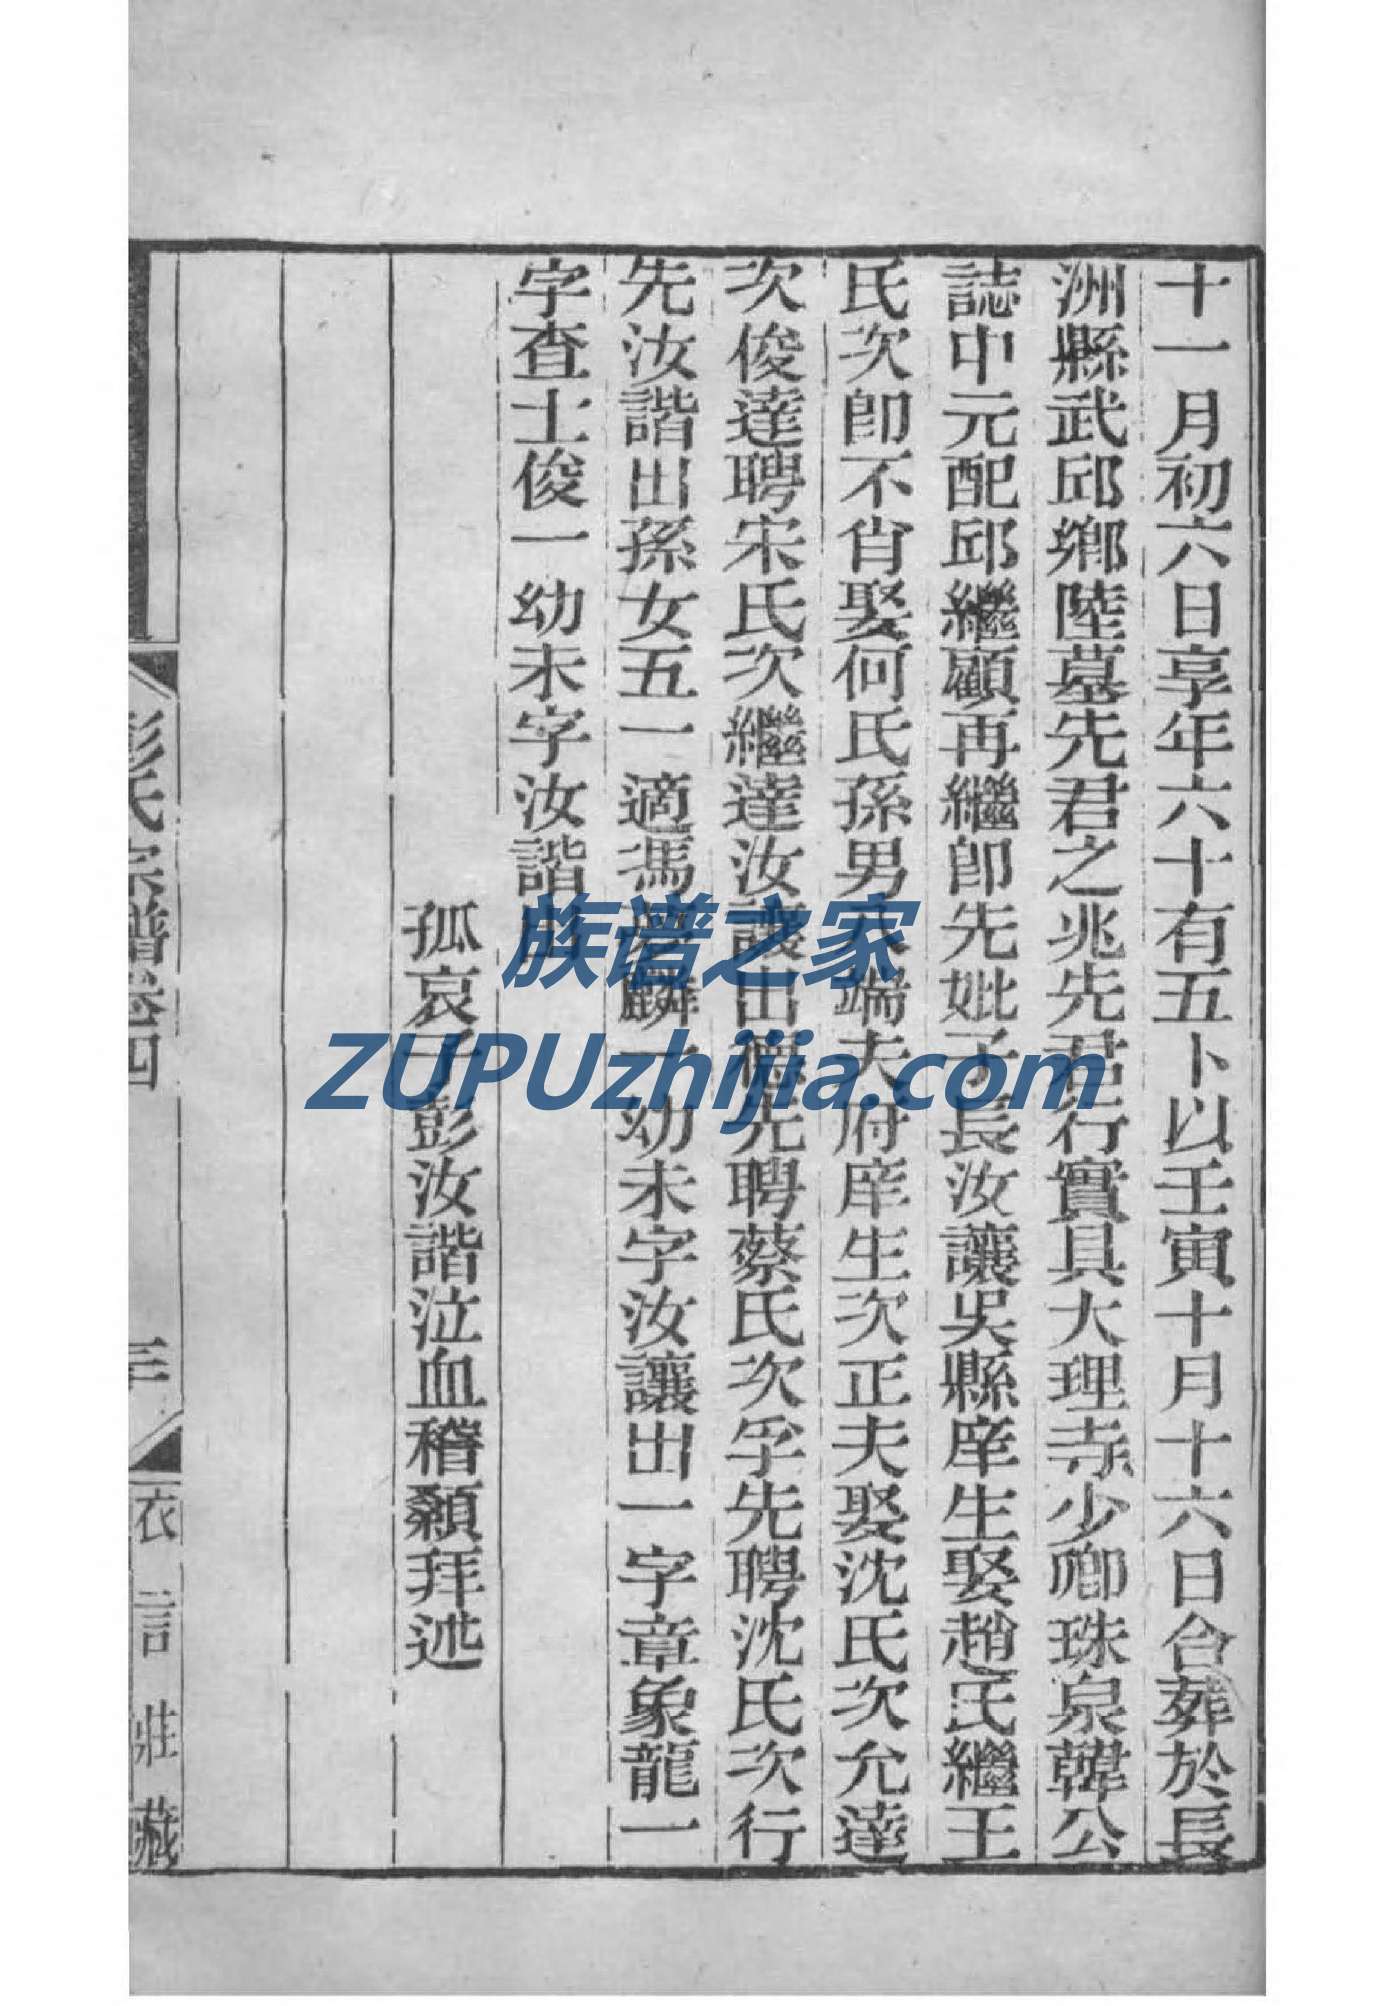 十一月初六日享年六十有五卜以壬寅十月十六日合葬於長
洲縣武邱鄉陸墓先君之兆先君行實具大理寺少卿珠泉韓公
誌中元配邱繼顧再繼卽先妣子長汝讓吳縣庠生娶趙氏繼王
氏次卽不肖娶何氏孫男八端夫府庠生次正夫娶沈氏次允達
次俊達聘宋氏次繼達汝讓出德先聘蔡氏次孚先聘沈氏次行
先汝諧出孫女五一適馮夢麟一幼未字汝讓出一字章象龍一
字查士俊一幼未字汝諧出
孤哀子彭汝諧泣血稽顙拜述
彭氏宗譜卷四
三
衣言莊藏
族谱之家
ZUPUzhijia.com